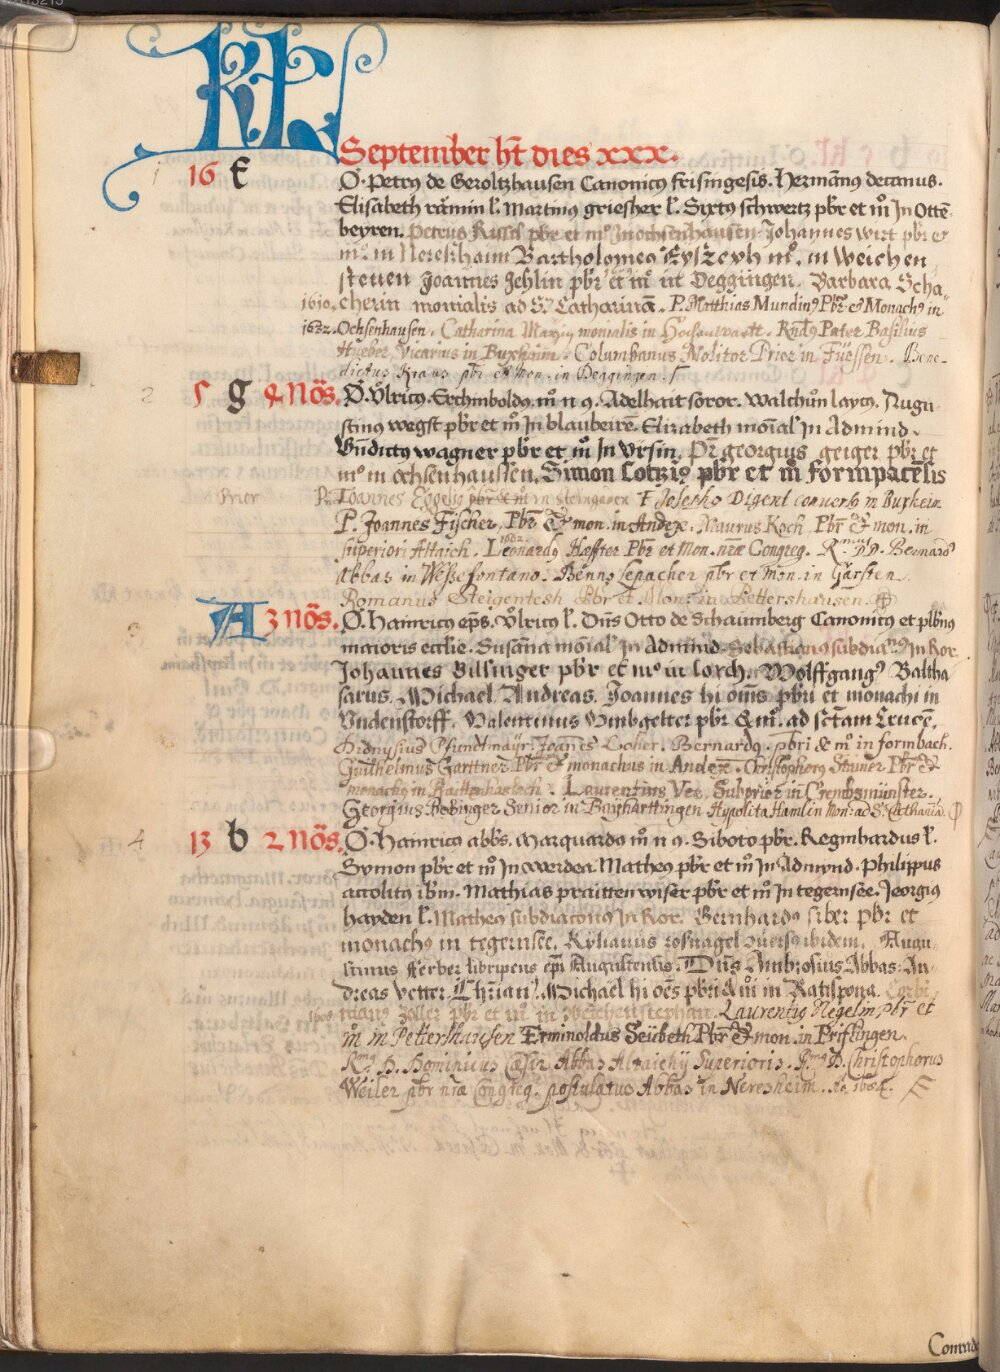 KL
September ht dies xxx.
1 16 f O. Petrus de Geroltzhausen Canonicus frisingesis. Hermānus decanus.
Elisabeth l. Martinus griesher l. Sixtus schwertz pbr et m̊ Jn Otte-
beyren. Petrus pbr et mo Jn ochsenhausen. Johannes wirt pbr et
mo. in Nereshaim Bartholomeus mo. in Weichen
steuen Joannes Jehlin pbr et mo in Deggingen. Barbara Scha-
1610. cherin monialis ad S. Catharinā. P. Matthias Munding Pbr et Monachus in
1632. Ochsenhausen. Catharina monialis in Rnds Pater Basilius
Hueber, Vicarius in Buxhaim. Columbanus Molitor Prior in Füessen. Bene-
dictus Kraus pbr et mon. in Deggingen.
2 5 g 4 Nōs. O. Vlricus. Erchinboldus m̊ n 9. Adelhait soror. Walchūn laycus. Augu-
stinus wegst pbr et m̊ Jn blaubeirē. Elizabeth mōial Jn Admind.
Bn̄dictus wagner pbr et m̊ Jn Vrsin. Pr georgius geiger pbr et
mo in ochsenhaussen. Simon pbr et m̊ formpacēsis
Prior Joannes pbr & m in Steingaden Josephus Digent conversus in Buxheim
P. Joannes Fischer, Pbr & mon. in Andex. Maurus Koch Pbr & mon. in
superiori Altaich. Leonardus Haffter Pbr et Mon. nr̄æ Congreg. Rmus D. Bernardus
Abbas in Wessefontano. Benno Lepacher pbr et mon. in Garsten.
Romanus Steigentesh Pbr et Mon. in Pettershausen.
3 A 3 Nōs. O. Hainricus ep̄s. Vlricus l. Dn̄s Otto de Schaumberg Canonicus et plbnus
maioris eccl̄ie. Susāna mōial Jn Admind. Sebastianus subdiac 9 Jn Ror.
Johannes Billinger pbr et mo in lorch. Wolffgangus Baltha
sarus. Michael Andreas. Joannes hi om̄s pbri et monachi in
Vndenstorff. Valentinus Vmbgelter pbr & m. ad sctam Crucē.
Dionysius Pfundtmayr. Joannes Locher. Bernardus. pbri & m̊ in formbach.
Guilhelmus Garttner Pbr & monachus in Andex. Christophorus Stainer Pbr &
monachus in Raittenhaslach. Laurentius Vee, Subprior in Crembsmünster.
Georgius Senior in Bayharttingen Hypolita Hamlin Mon: ad S. Catharinā.
4 13 b 2 Nōs. O. Hainricus abbs. Marquardus m̊ n 9. Siboto pbr. Reginhardus l.
Symon pbr et m̊ Jn Werdea. Matheus pbr et m̊ Jn Admynd. Philippus
accolitus ibm. Mathias praittenwiser pbr et m̊ Jn tegernsee. Jeorgius
hayden l. Matheus subdiaconus Jn Ror. Bernhardus siber pbr et
monachus in tegernsee. Kylianus rosnagel ibidem. Augu
stinus Ferber libripens epi Augustensis. Dn̄s Ambrosius Abbas. An-
dreas Vetter. Chrīan. Michael hi oēs pbri & m in Ratispona. Corbi
1600 nianus Zoller pbr et m̊ in Weichenstephan. Laurentius Negelin, pbr et
m̊ in Petershausen Erminoldus Seibeth Pbr & mon. in Priflingen.
Rmus D. Dominicus Abbas Altaichij Superioris. Rmus D. Christophorus
Weiler pbr nr̄a Congreg. postulatus Abbas in Neresheim.